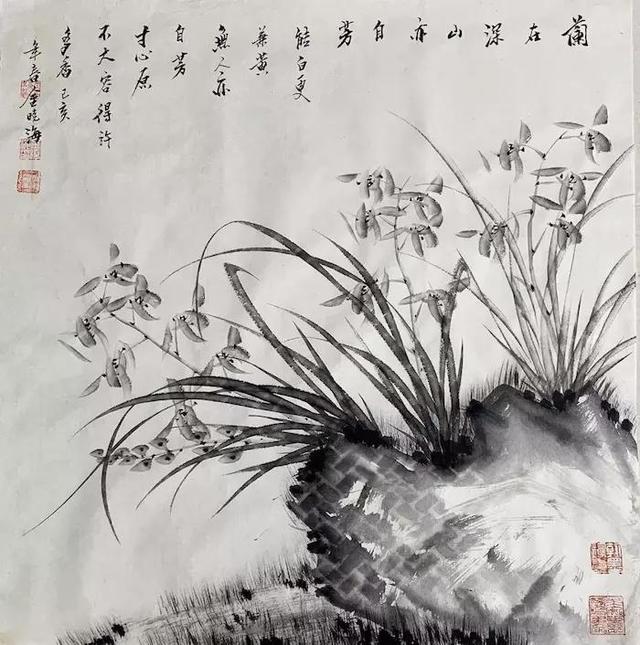 蘭在深山亦自芳
能白更
兼黄
無人亦
自芳
寸心原
不大容得許
多香 己亥
年春金